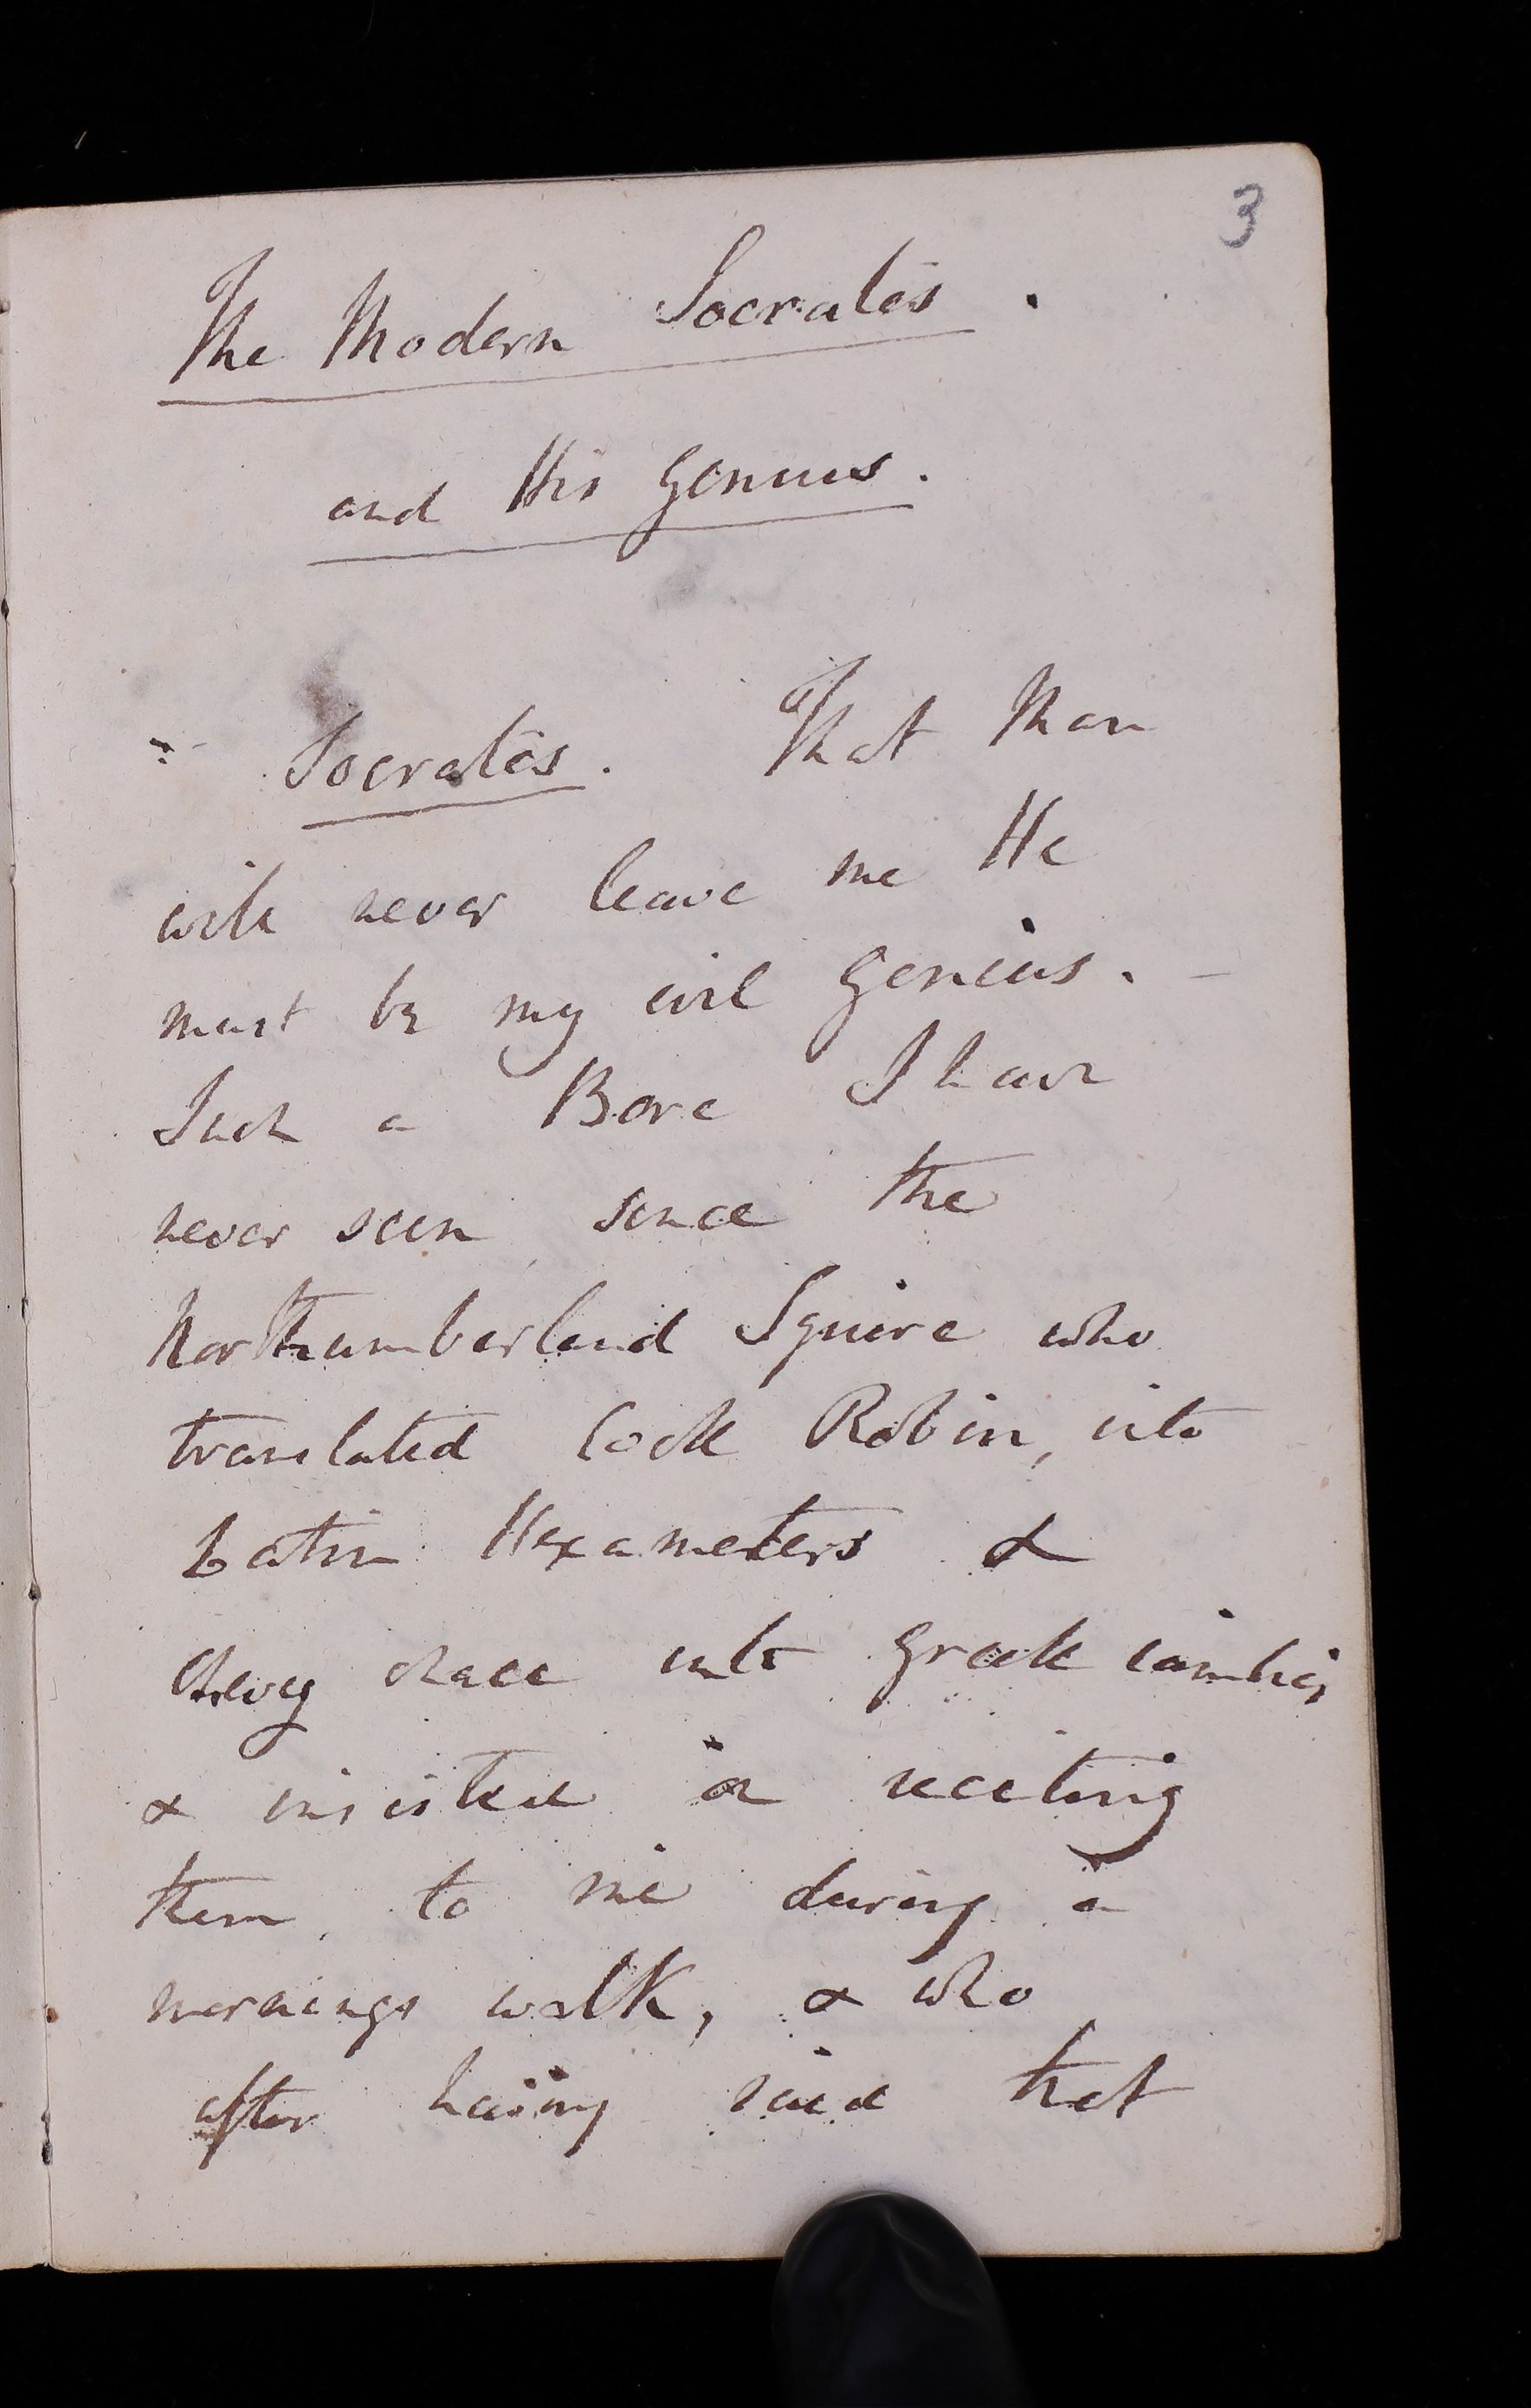 3
The Modern Socrates.
and His Genius.
Socrates. That Man
will never leave me He
must be my evil Genius. -
Such a Bore I have
never seen since the
Northumberland Squire who
translated Cock Robin, into
Latin Hexameters &
Chevy chace into Greek iambics
& insisted on reciting
them to me during a
mornings walk, & who
after having said that